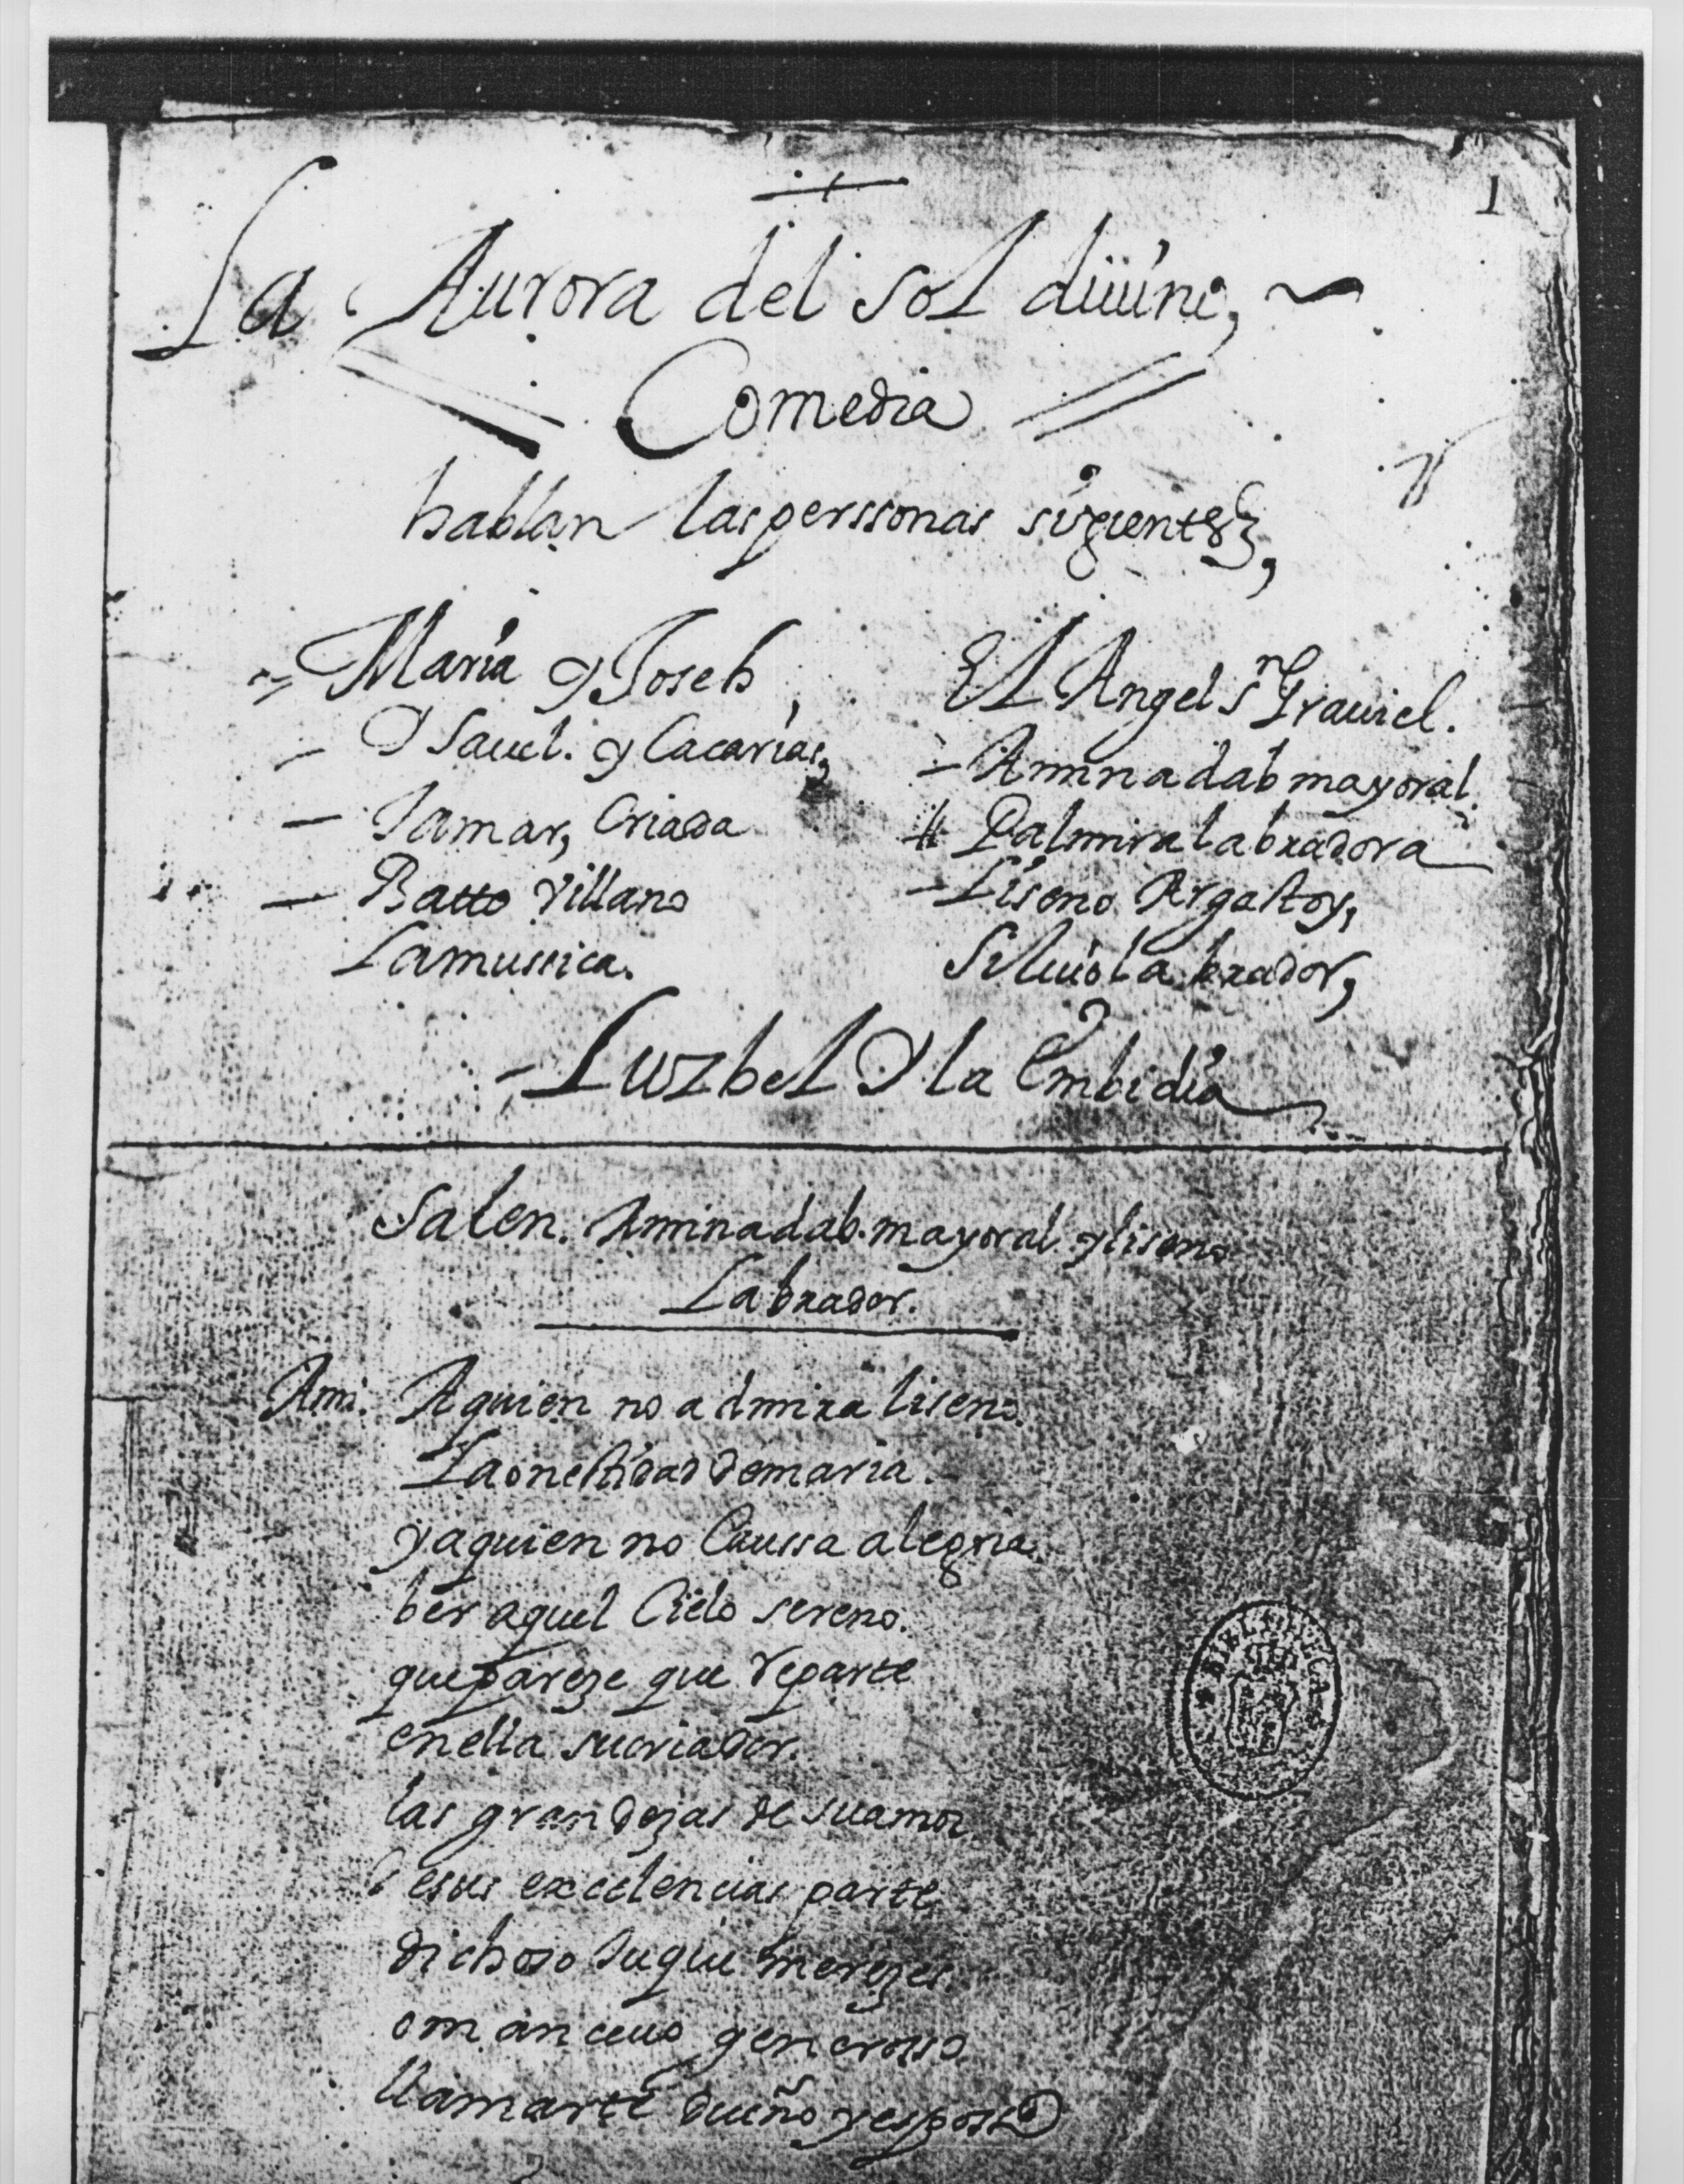 1
La Aurora del Sol diuino,
Comedia
hablan las perssonas siguientes,
Maria y Joseh,
El Angel Sn Grauiel.
Ysauel. y Cacarias,
Aminadab mayoral.
Tamar, Criada
Palmira labradora
Batto Villano
Liseno Ergastos,
La mussica.
Siluio labrador,
Luzbel Y la Embidia
Salen. Aminadab. mayoral. y liseno
Labrador.
Ami. A quien no admira liseno
La onestidad de maria.
y a quien no Caussa alegria
ber aquel Cielo sereno.
que pareze que reparte
en ella su criador.
las grandezas de su amor
de sus excelencias parte
dichoso tu que merezes
o manceuo generosso
llamarte dueño y esposso